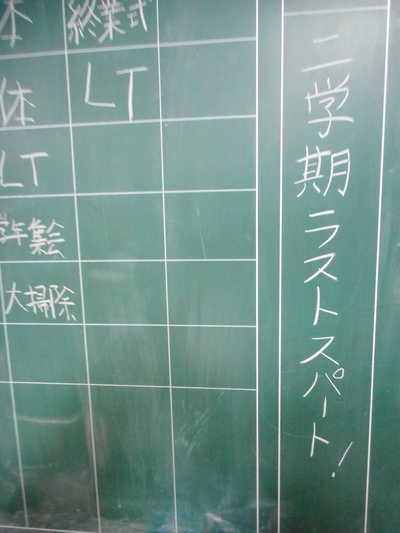 二学期ラストスパート!
終業式
LT
体
LT
学年集会
大掃除